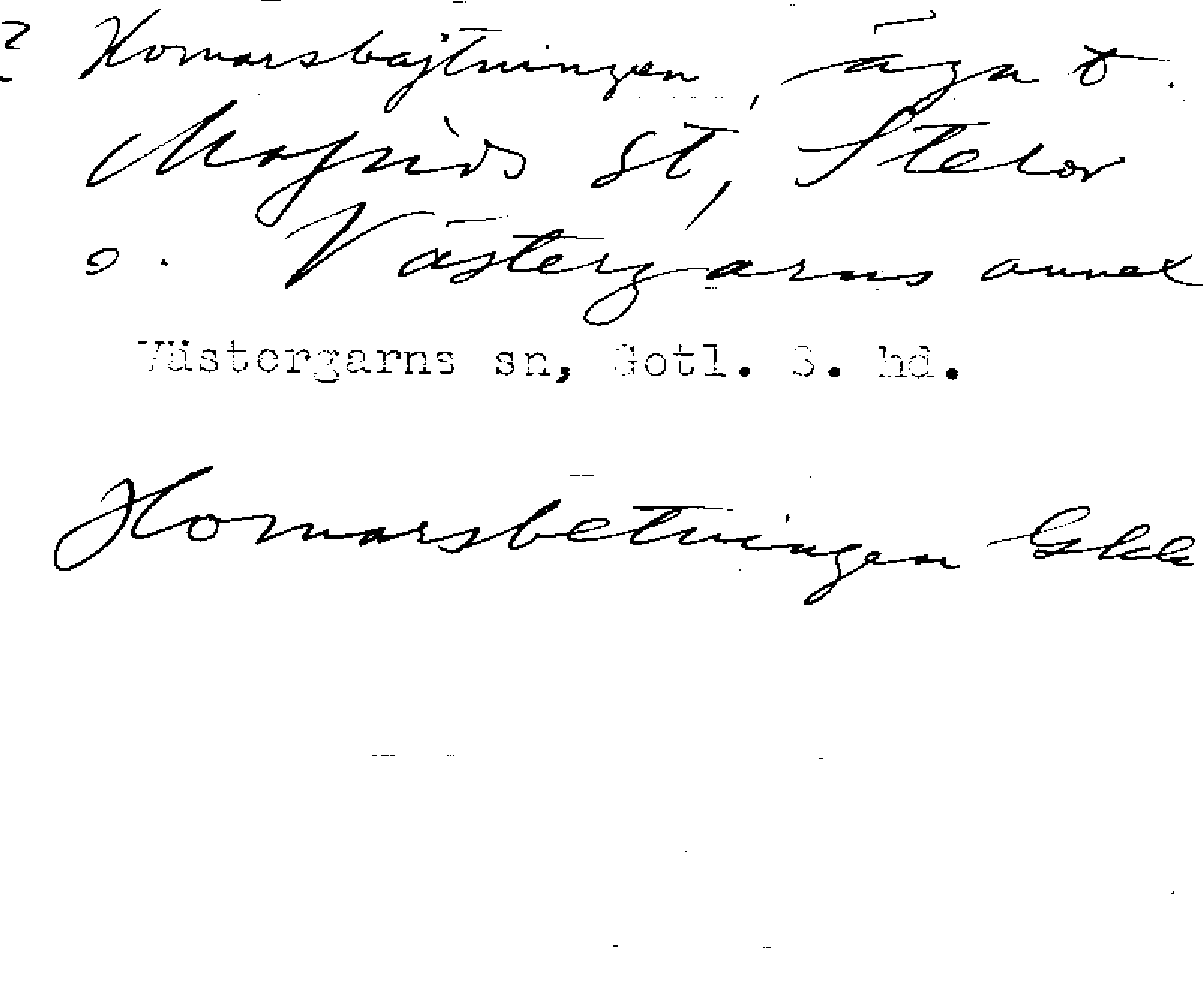 ? Homarsbajtningen, äga t.
Mafrids St, Stelor
o. Västergarns annex
Västergarns sn, Gotl. S. hd.
Homarsbetningen Gkk